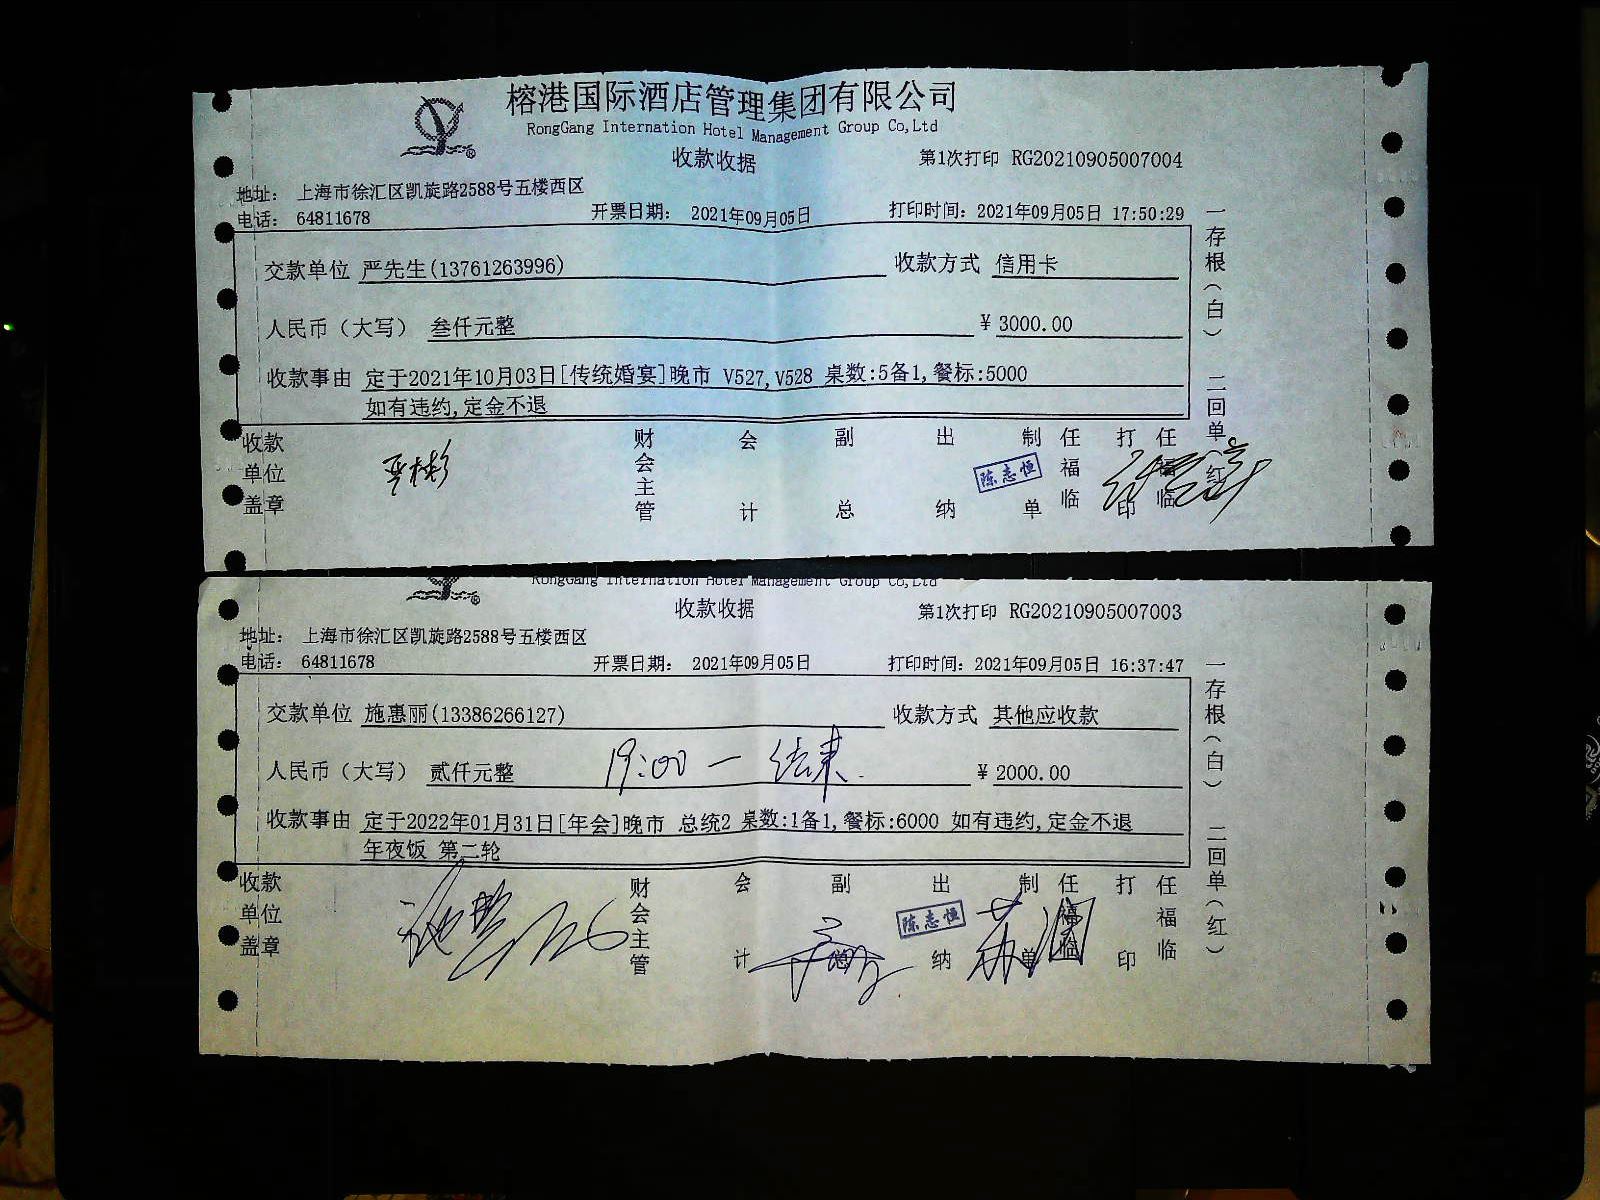 榕港国际酒店管理集团有限公司
RongGang Internation Hotel Management Group Co,Ltd
收款收据 第1次打印 RG20210905007004
地址： 上海市徐汇区凯旋路2588号五楼西区
电话： 64811678 开票日期： 2021年09月05日 打印时间：2021年09月05日 17:50:29
交款单位 严先生(13761263996) 收款方式 信用卡
人民币（大写） 叁仟元整 ¥ 3000.00
收款事由 定于2021年10月03日[传统婚宴]晚市 V527,V528 桌数:5备1,餐标:5000
如有违约,定金不退
一存根（白） 二回单（红）
收款单位盖章 严彬 财会主管 会计 副总 出纳 陈志恒 制单 任福临 打印 任福临
RongGang Internation Hotel Management Group Co,Ltd
收款收据 第1次打印 RG20210905007003
地址： 上海市徐汇区凯旋路2588号五楼西区
电话： 64811678 开票日期： 2021年09月05日 打印时间：2021年09月05日 16:37:47
交款单位 施惠丽(13386266127) 收款方式 其他应收款
人民币（大写） 贰仟元整 19:00 — 结束. ¥ 2000.00
收款事由 定于2022年01月31日[年会]晚市 总统2 桌数:1备1,餐标:6000 如有违约,定金不退
年夜饭 第二轮
一存根（白） 二回单（红）
收款单位盖章 财会主管 会计 副总 出纳 陈志恒 制单 任福临 打印 任福临